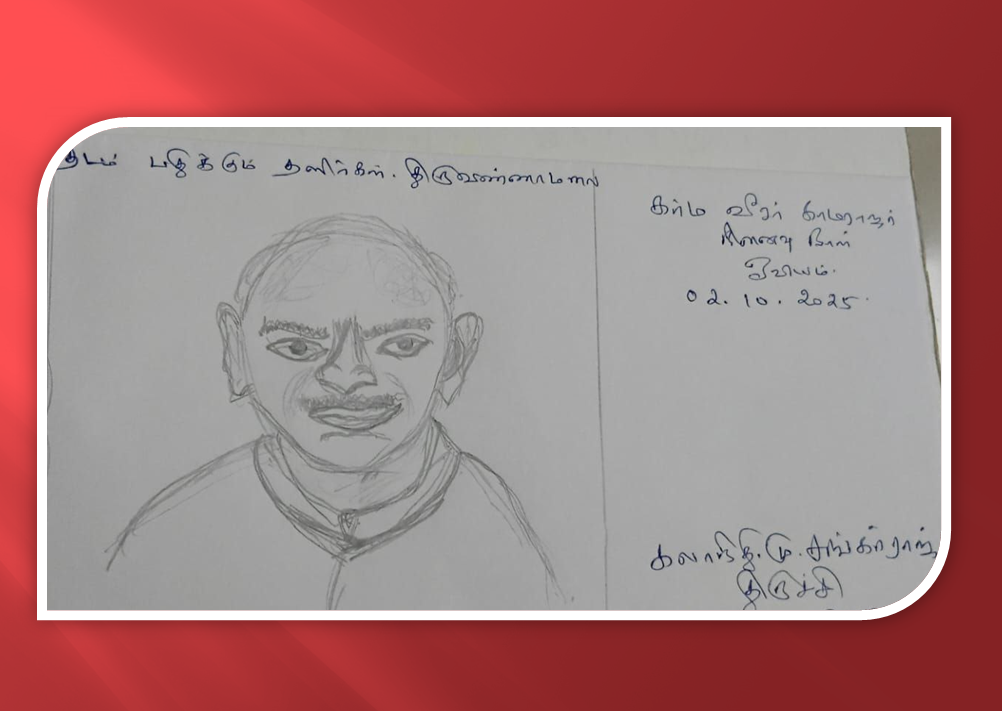 தடம் பதிக்கும் தளிர்கள். திருவண்ணாமலை
கர்ம வீரர் காமராஜர்
நினைவு நாள்
ஓவியம்.
02.10.2025.
கலாநிதி.மு.சங்கர்ராஜ்
திருச்சி